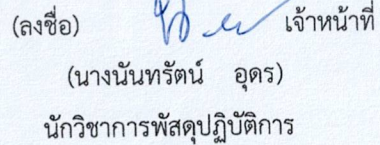 (ลงชื่อ) เจ้าหน้าที่
(นางนันทรัตน์ อุดร)
นักวิชาการพัสดุปฏิบัติการ